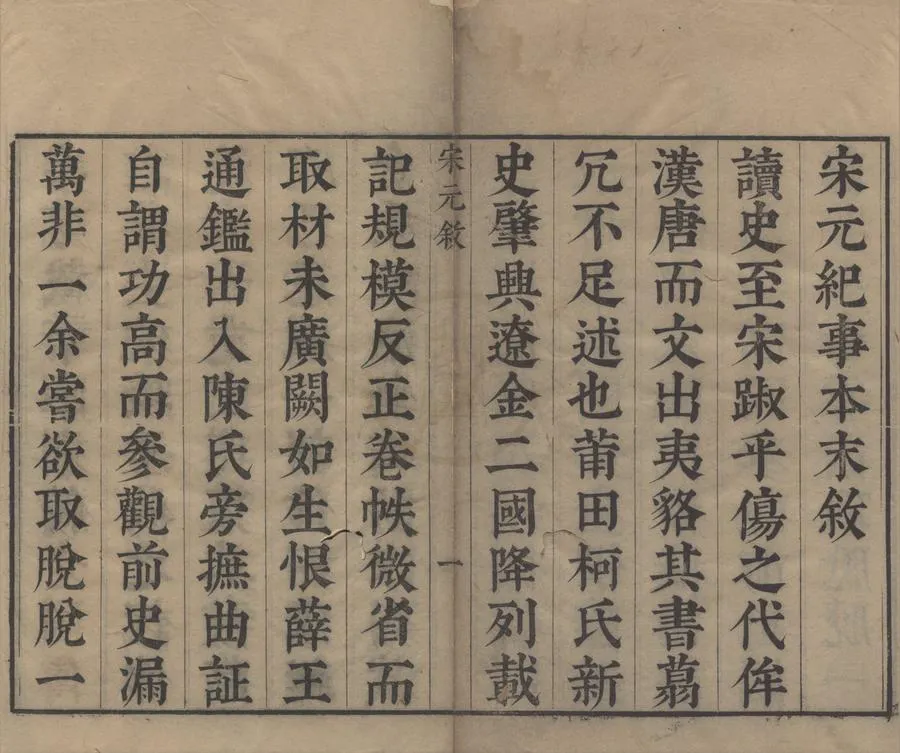 宋元紀事本末敘
讀史至宋踧乎傷之代侔
漢唐而文出夷貉其書蕞
冗不足述也莆田柯氏新
史肇興遼金二國降列載
宋元敘
一
記規模反正卷帙微省而
取材未廣闕如生恨薛王
通鑑出入陳氏旁摭曲証
自謂功高而參觀前史漏
萬非一余嘗欲取脫脫一